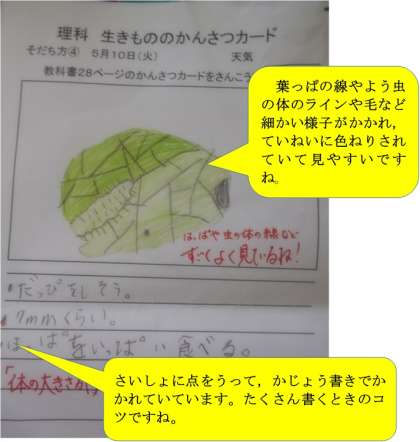 理科 生きもののかんさつカード
そだち方④ 5月10日(火) 天気
教科書28ページのかんさつカードをさんこう
葉っぱの線やよう虫
の体のラインや毛など
細かい様子がかかれ，
ていねいに色ねりされ
ていて見やすいです
ね。
はっぱや虫の体の線など
すごくよく見ているね！
だっぴをしそう。
7mmくらい。
はっぱをいっぱい食べる。
「体の大きさが
さいしょに点をうって，かじょう書きでか
かれていています。たくさん書くときのコ
ツですね。